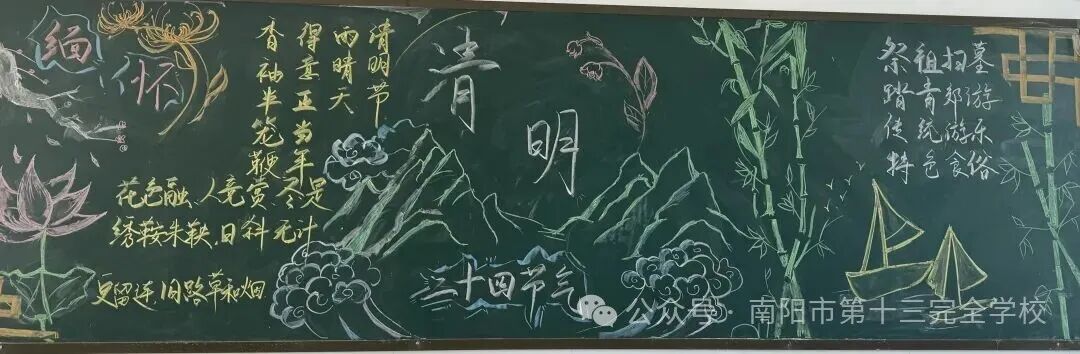 缅怀
清明节
雨晴天
得意正当年
香袖半笼鞭
花色融、人竟赏,尽是
绣鞍朱鞅,日斜无计
更留连归路草和烟
清明
二十四节气
祭祖扫墓
踏青郊游
传统游乐
特色食俗
公众号·南阳市第十三完全学校